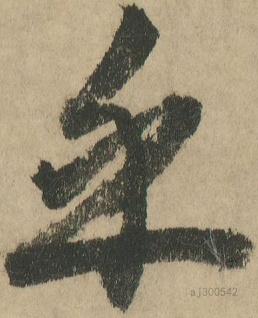 年
aj300542